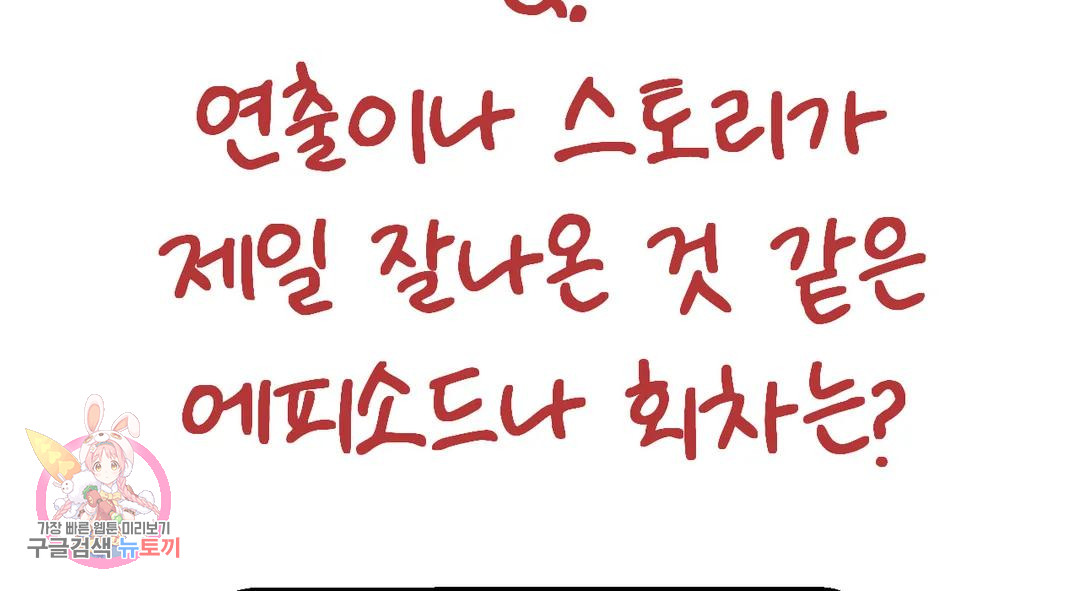 Q.
연출이나 스토리가
제일 잘나온 것 같은
에피소드나 회차는?
가장 빠른 웹툰 미리보기
구글검색 뉴토끼